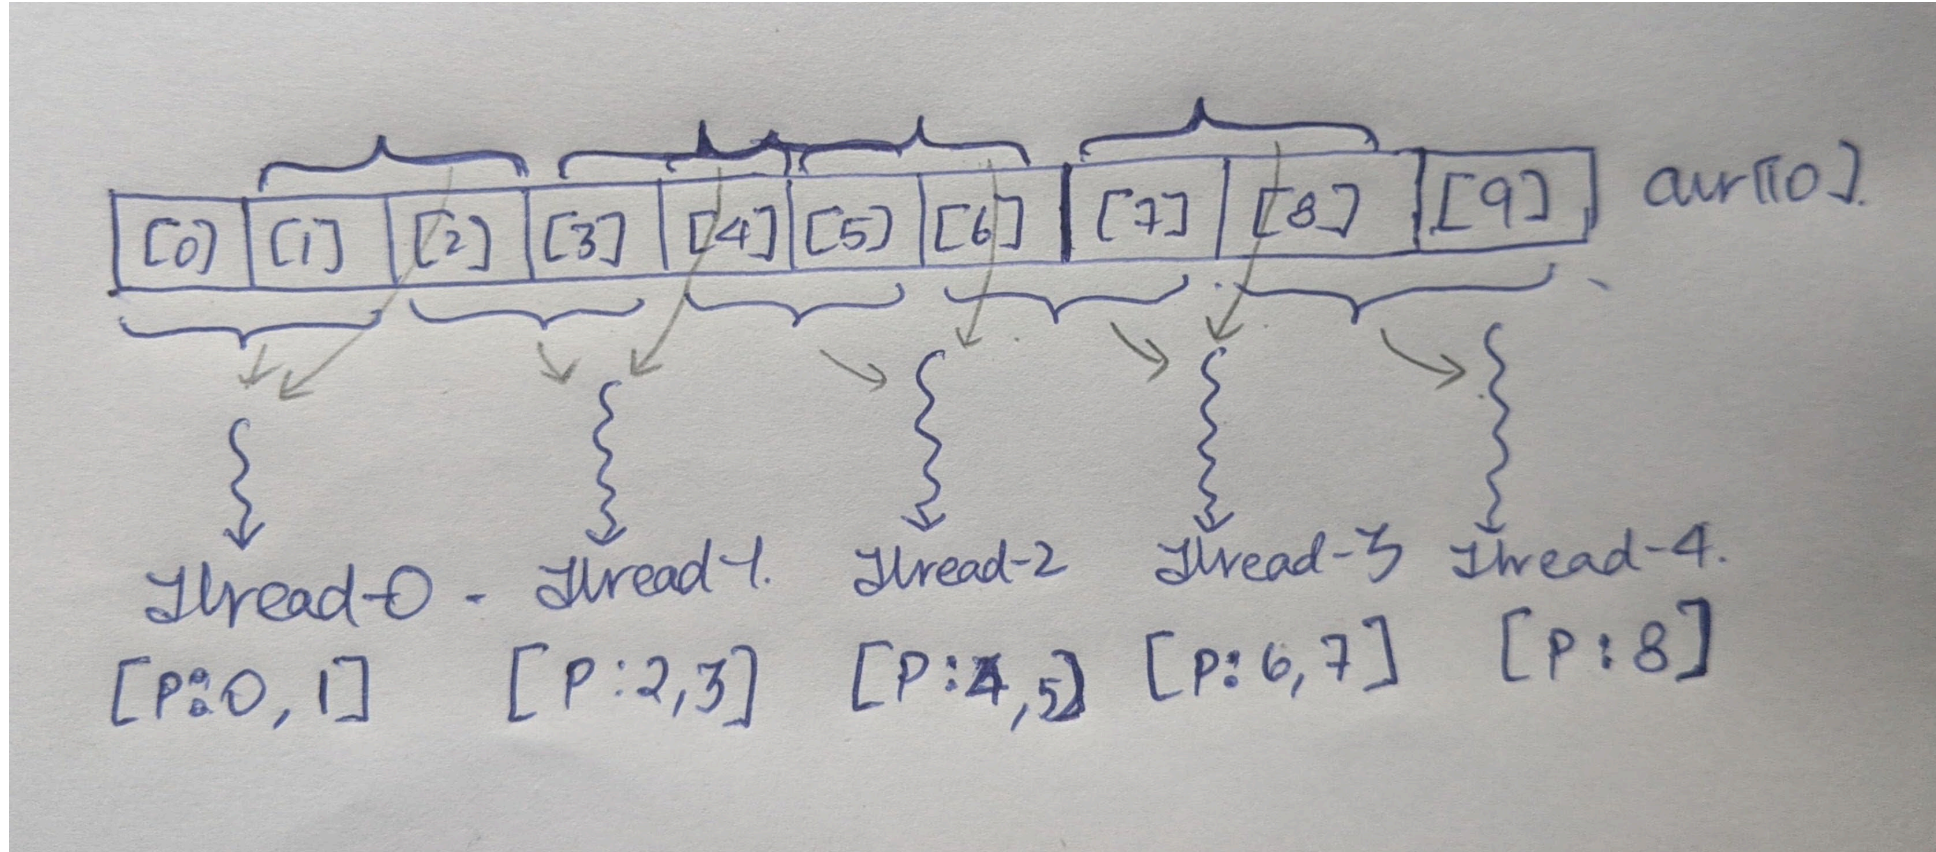 [0] [1] [2] [3] [4] [5] [6] [7] [8] [9] arr[10].
Thread-0. Thread-1. Thread-2 Thread-3 Thread-4.
[P:0,1] [P:2,3] [P:4,5] [P:6,7] [P:8]